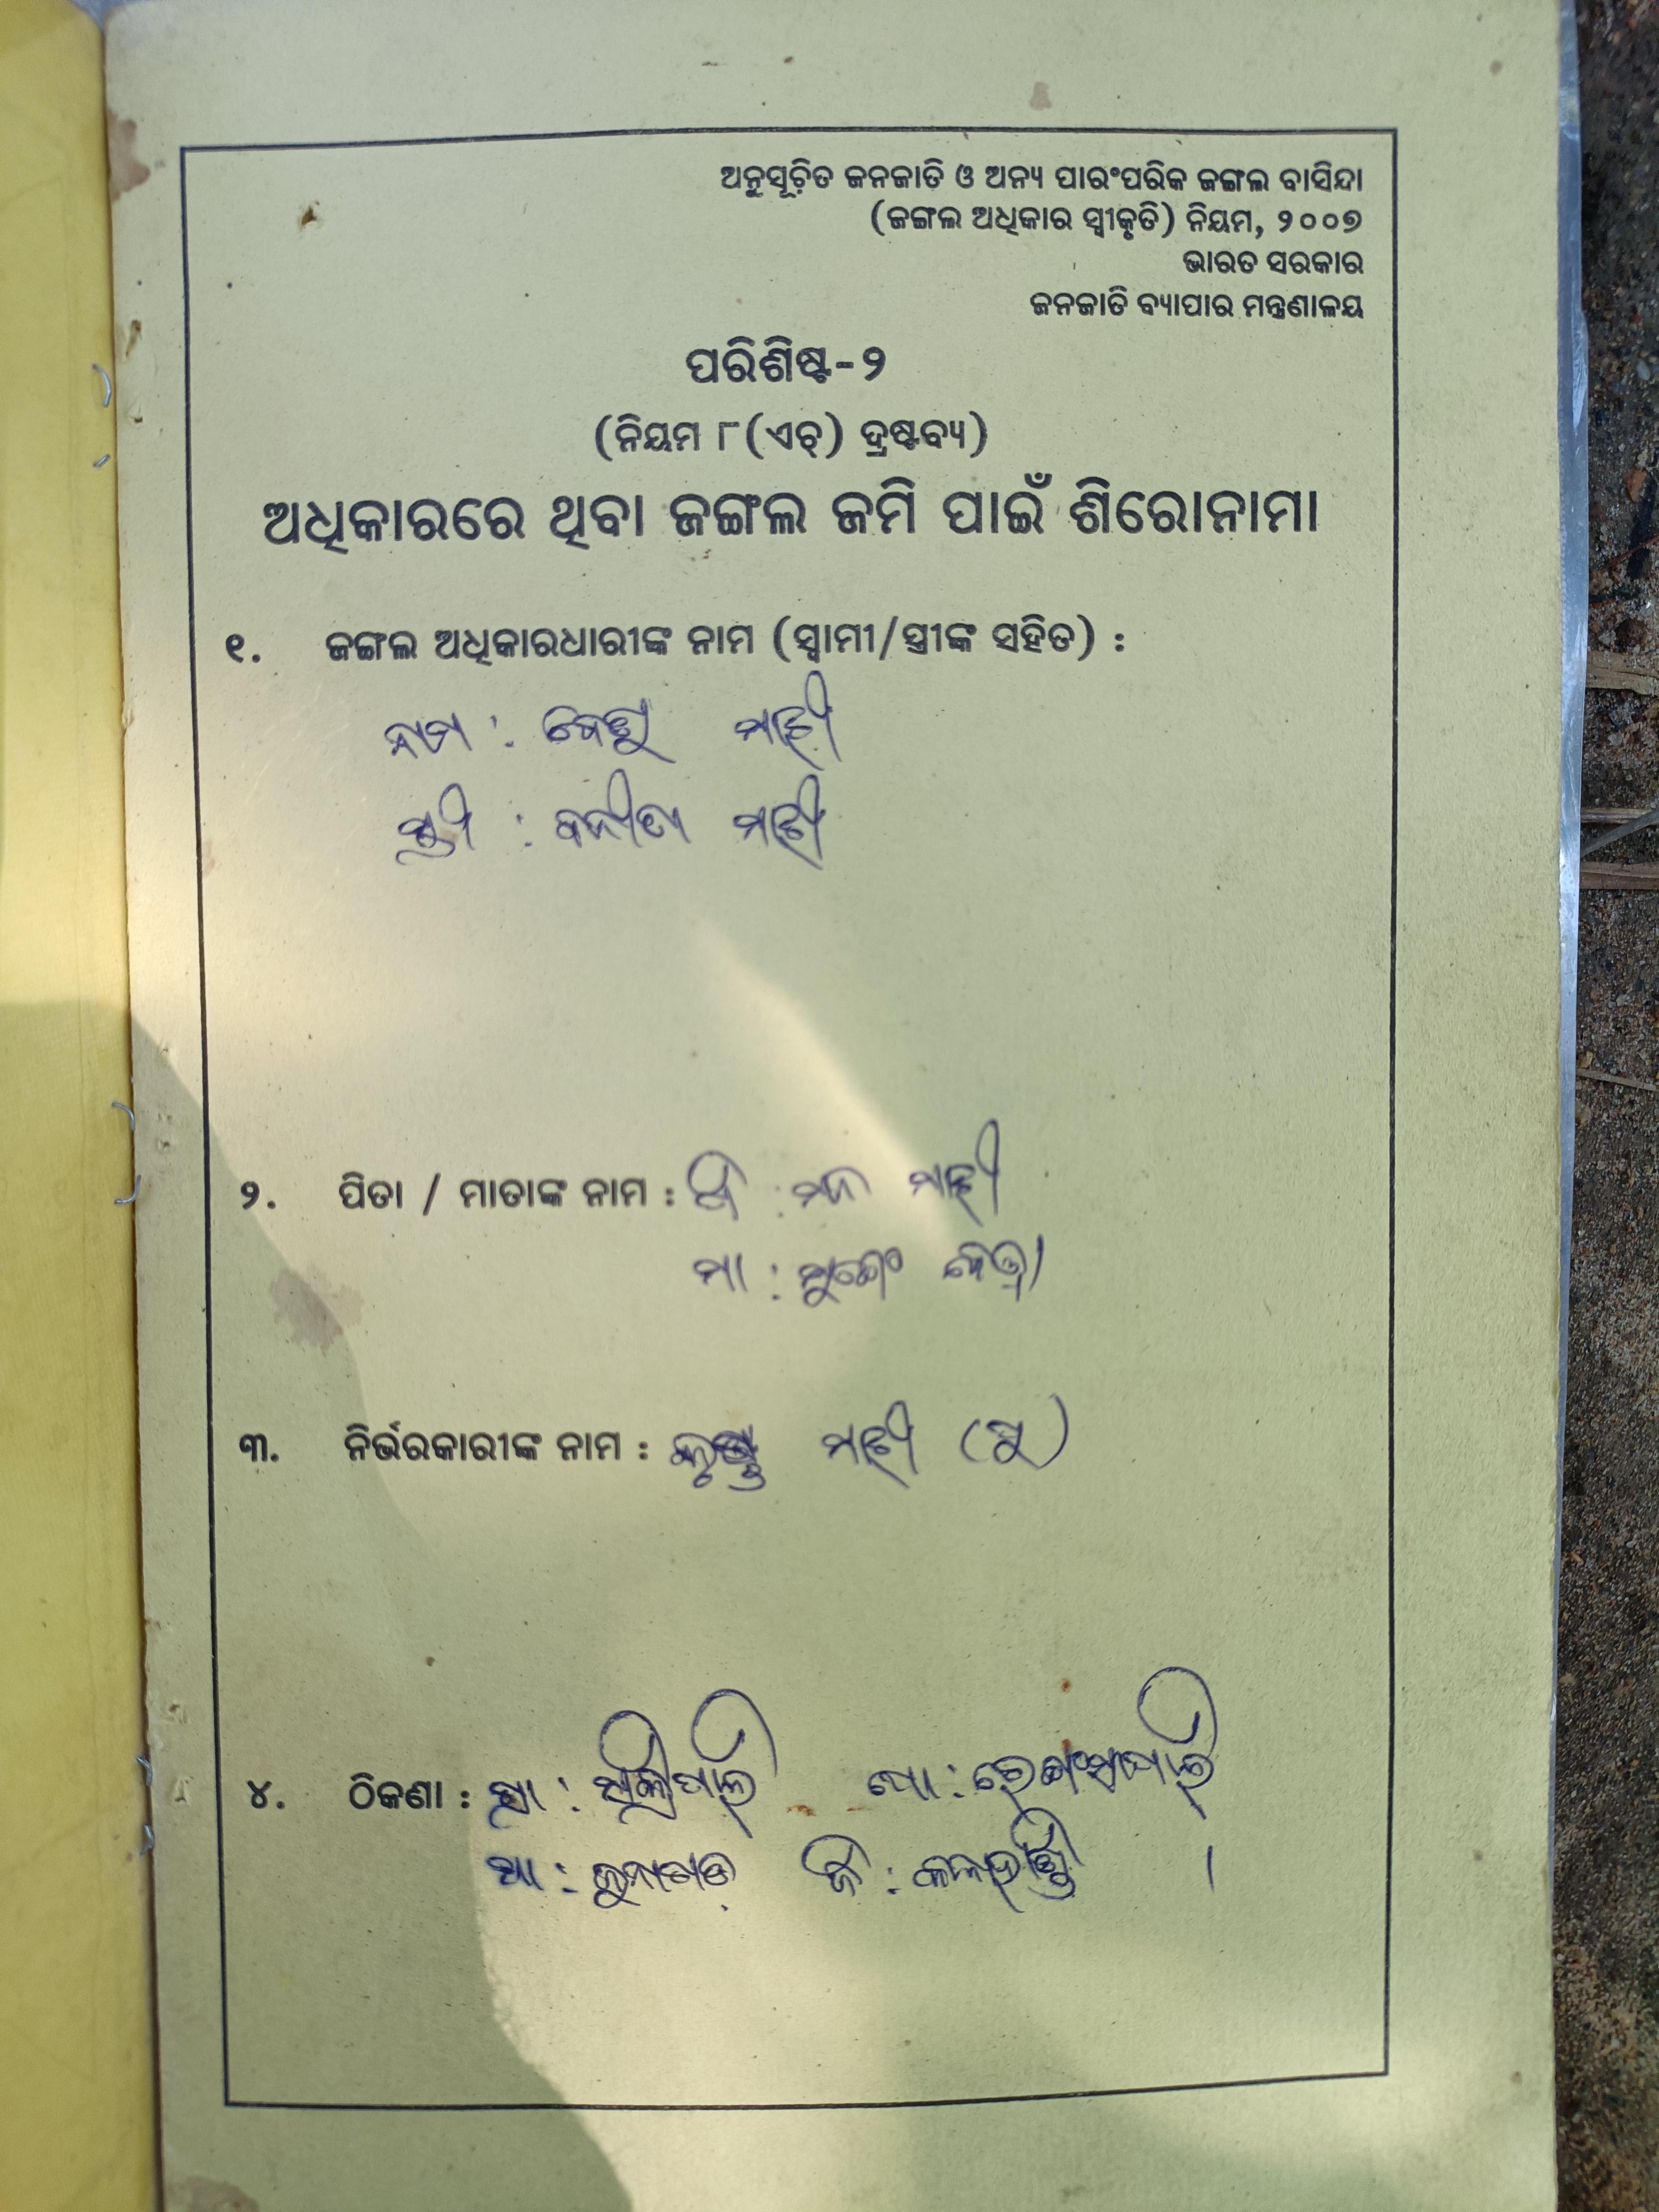 ଅନୁସୂଚିତ ଜନଜାତି ଓ ଅନ୍ୟ ପାରଂପରିକ ଜଙ୍ଗଲ ବାସିନ୍ଦା
(ଜଙ୍ଗଲ ଅଧିକାର ସ୍ୱୀକୃତି) ନିୟମ, ୨୦୦୭
ଭାରତ ସରକାର
ଜନଜାତି ବ୍ୟାପାର ମନ୍ତ୍ରଣାଳୟ
ପରିଶିଷ୍ଟ-୨
(ନିୟମ ୮(ଏଚ୍) ଦ୍ରଷ୍ଟବ୍ୟ)
ଅଧିକାରରେ ଥିବା ଜଙ୍ଗଲ ଜମି ପାଇଁ ଶିରୋନାମା
୧. ଜଙ୍ଗଲ ଅଧିକାରଧାରୀଙ୍କ ନାମ (ସ୍ୱାମୀ/ସ୍ତ୍ରୀଙ୍କ ସହିତ) :
ନାମ : ମାଝୀ
ସ୍ତ୍ରୀ : ମାଝୀ
୨. ପିତା / ମାତାଙ୍କ ନାମ : ପି : ମାଝୀ
ମା :
୩. ନିର୍ଭରକାରୀଙ୍କ ନାମ : ମାଝୀ (ପୁ)
୪. ଠିକଣା : ଗ୍ରା : ପୋ :
ଥା : ଜୁନାଗଡ଼ ଜି : କଳାହାଣ୍ଡି ।